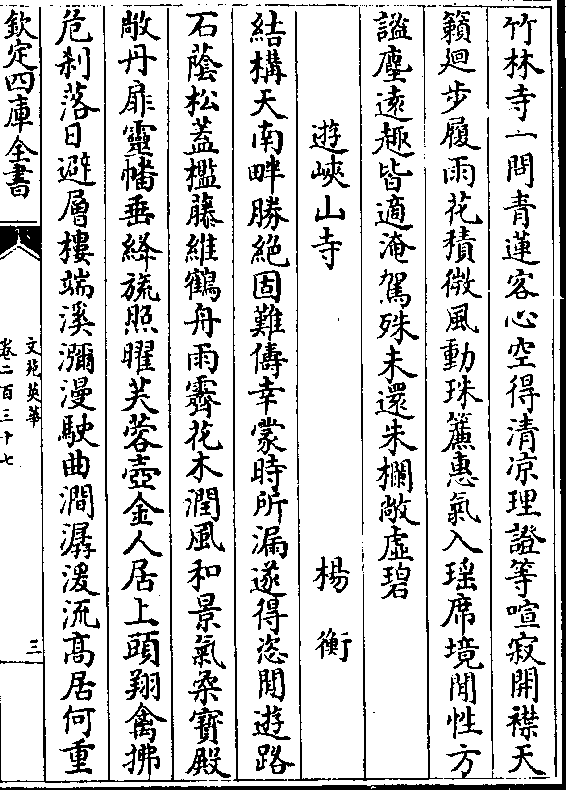 竹林寺一問青蓮客心空得清凉理證等喧寂開襟天
籟廻步履雨花積微風動珠簾惠氣入瑶席境閒性方
謐塵逺趣皆適淹駕殊未還朱欄敞虚碧
遊峽山寺 楊衡
結構天南畔勝絶固難儔幸蒙時所漏遂得恣閒遊路
石蔭松蓋檻藤維鶴舟雨霽花木潤風和景氣柔寳殿
敞丹扉靈幡垂絳旒照曜芙蓉壺金人居上頭翔禽拂
危刹落日避層樓端溪瀰漫駛曲澗潺湲流髙居何重
欽定四庫全書
文苑英華
卷二百三十七
三